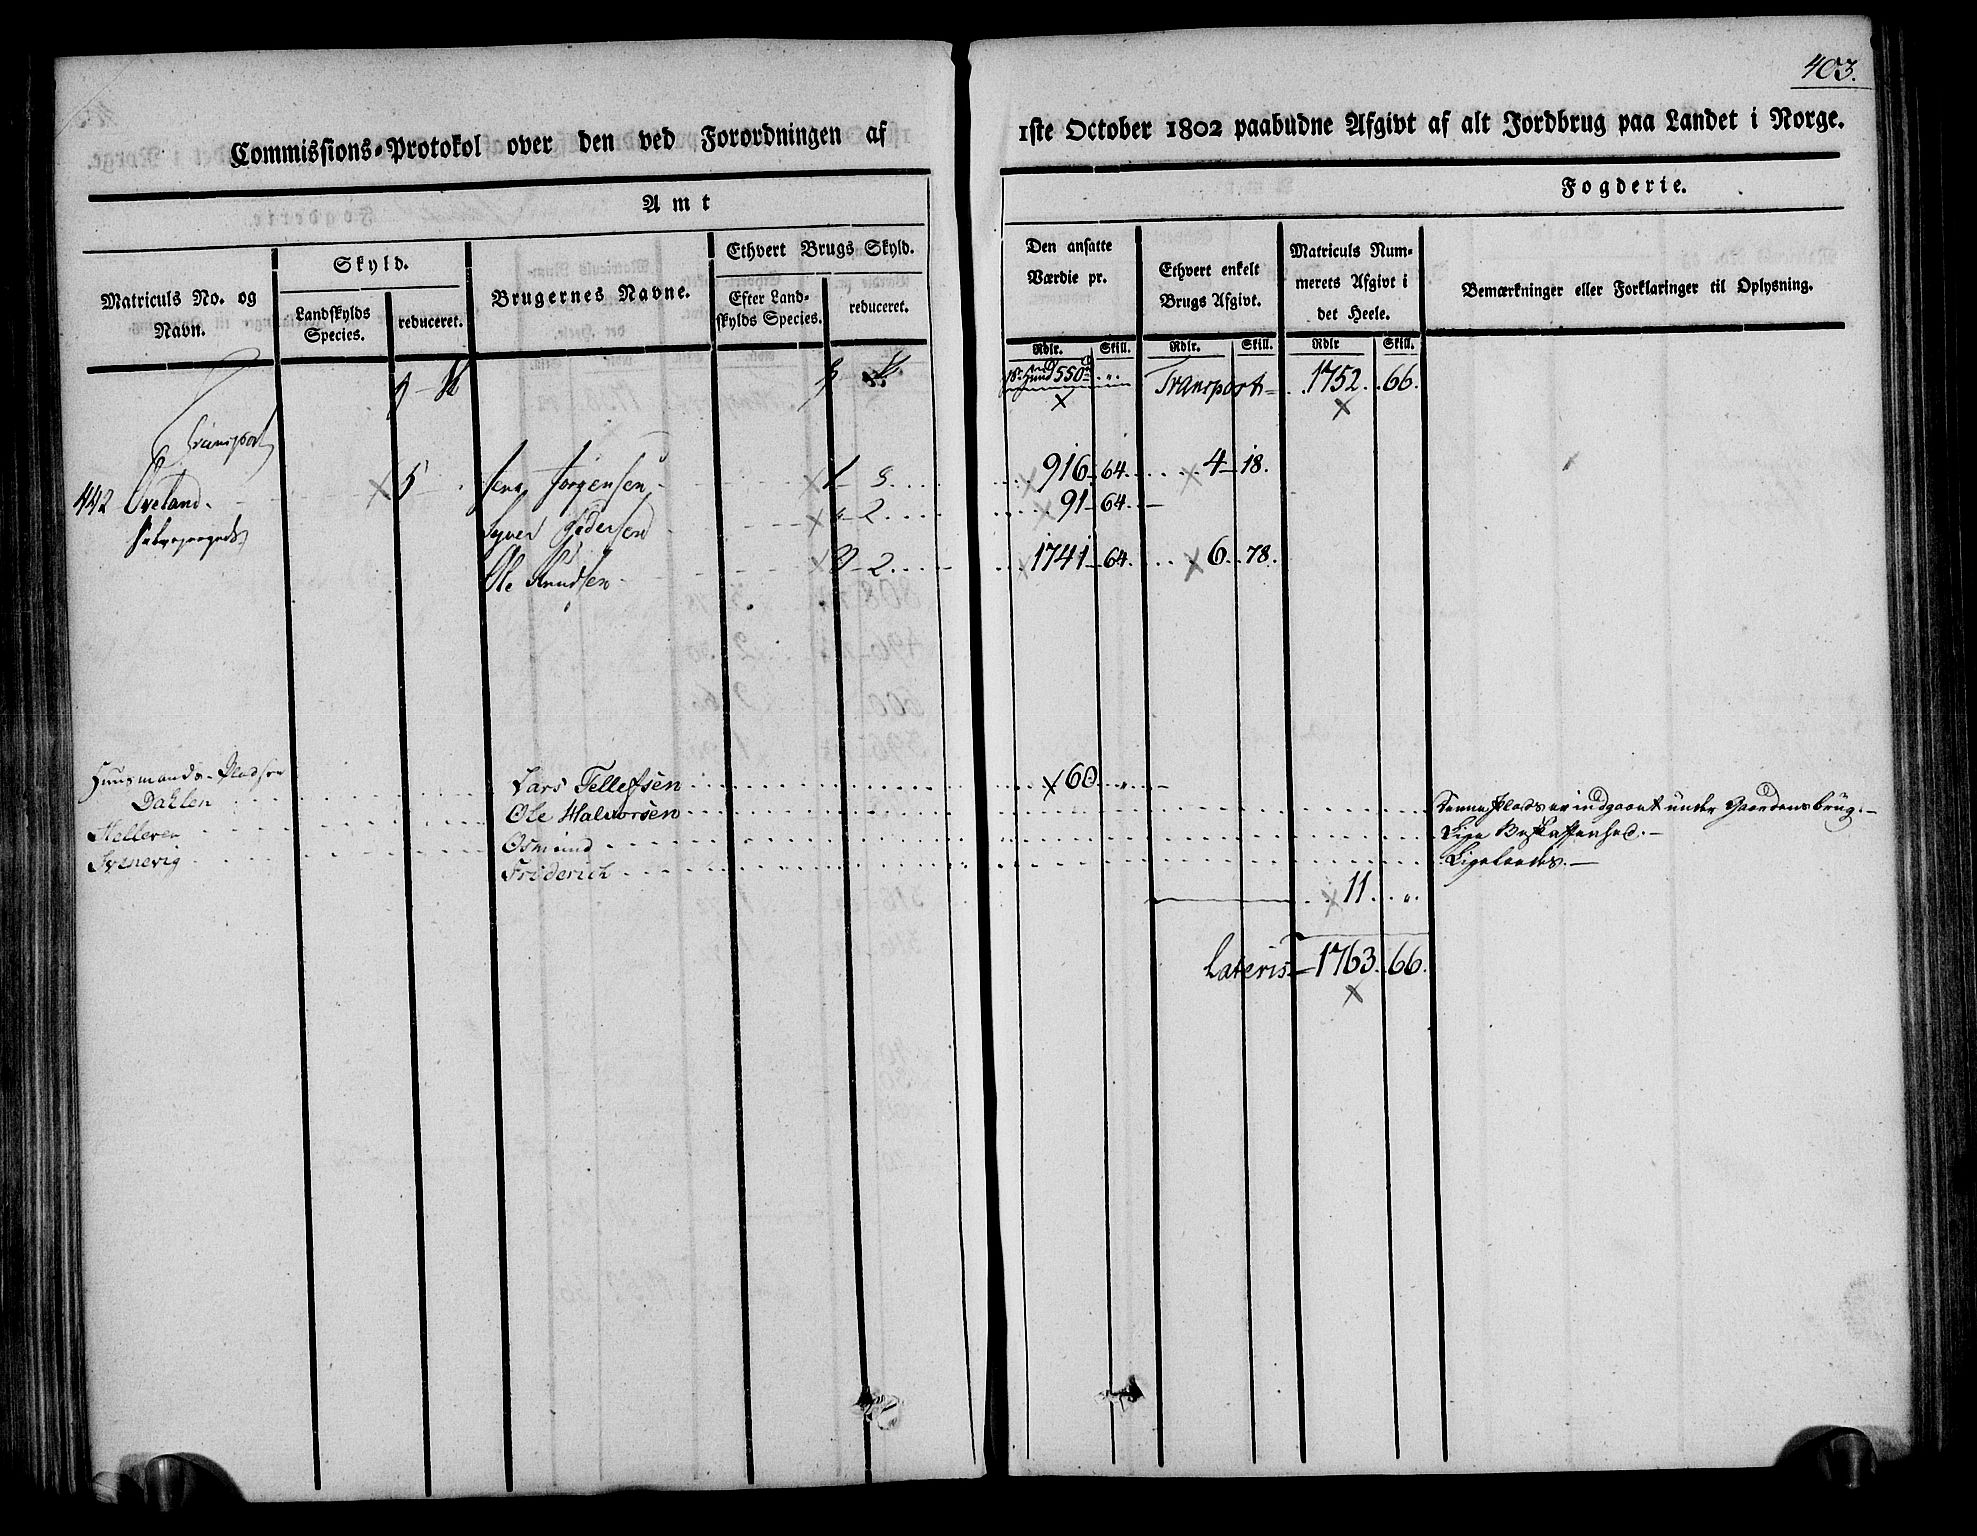 403.
Commissions-Protokol over den ved Forordningen af 1ste October 1802 paabudne Afgivt af alt Jordbrug paa Landet i Norge.
Amt
Fogderie.
Matriculs No. og Navn.
Skyld.
Landskylds Species.
reduceret.
Brugernes Navne.
Ethvert Brugs Skyld.
Efter Landskylds Species.
reduceret.
Den ansatte Værdie pr.
Ethvert enkelt Brugs Afgivt.
Matriculs Nummerets Afgivt i det Heele.
Bemærkninger eller Forklaringer til Oplysning.
Rdlr. Skill. Rdlr. Skill. Rdlr Skill.
Transport
550 Transport 1752. 66.
442 Oveland 5 Jens Jörgensen 1 - 3 916 - 64. 4 - 18.
Syver Pedersen - 2 91 - 64.
Ole Knudsen 3 - 2 1741 - 64. 6 - 78.
Huusmands-Pladser
Dahlen Lars Tellefsen 60
Helleren Ole Halvorsen Denne Plads er indgaaet under Gaardens brug.
Svenevig Osmund Lige Beskaffenhed.
Friderich Ligeleedes.
11
Lateris 1763. 66.